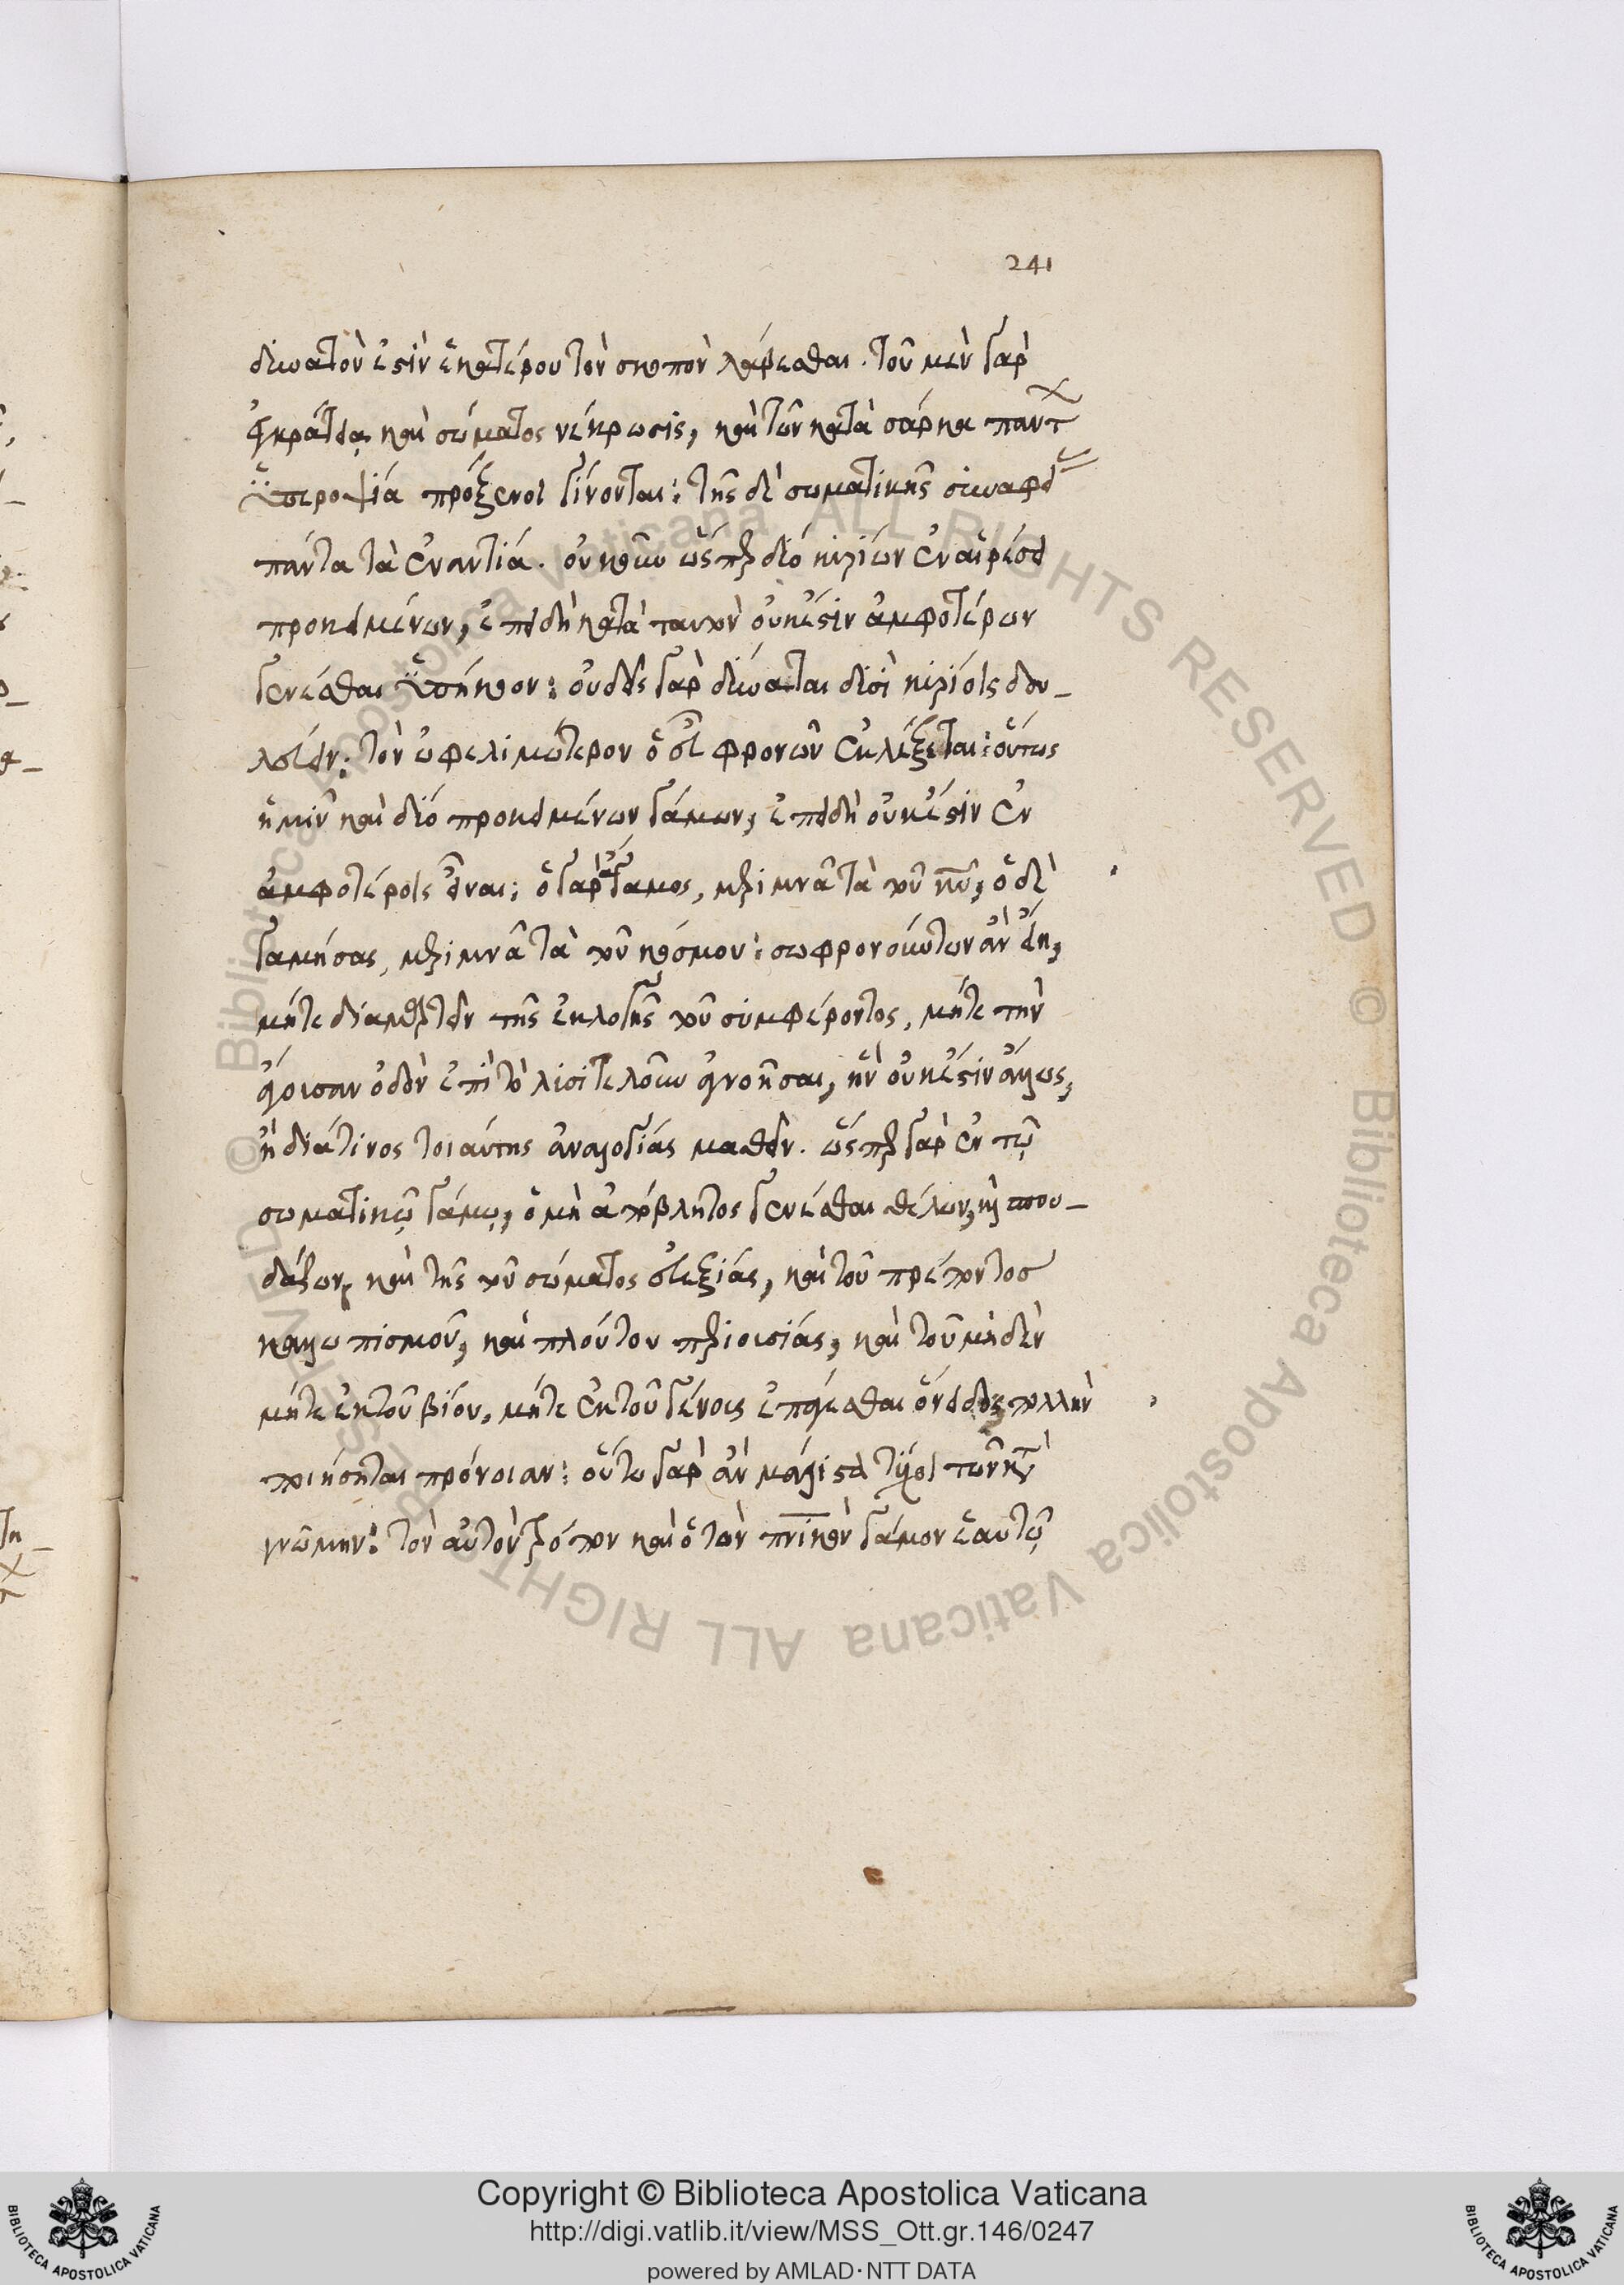 241
δυνατὸν ἐστὶν ἑκατέρου τὸν σκοπὸν λάβεσθαι. τοῦ μὲν γὰρ
ἐγκράτεια καὶ σώματος νέκρωσις, καὶ τῶν κατὰ σάρκα πάντων
ὑπεροψία πρόξενοι γίνονται: τῆς δὲ σωματικῆς συναφείας
πάντα τὰ ἐναντία. οὐκοῦν ὥσπερ δύο κυρίων ἐν αἱρέσει
προκειμένων, ἐπειδὴ κατὰ ταυτὸν οὐκ ἔστιν ἀμφοτέρων
γενέσθαι ὑπήκοον: οὐδεὶς γὰρ δύναται δυσὶ κυρίοις δου-
λεύειν: τὸν ὠφελιμώτερον ὁ εὖ φρονῶν ἐκλέξεται: οὕτως
ἡμῖν καὶ δύο προκειμένων γάμων, ἐπειδὴ οὐκ ἔστιν ἐν
ἀμφοτέροις εἶναι: ὁ γὰρ ἄγαμος, μεριμνᾶ τὰ τοῦ κυ, ὁ δὲ
γαμήσας, μεριμνᾶ τὰ τοῦ κόσμου: σωφρονούντων ἂν εἴη,
μήτε διαμαρτεῖν τῆς ἐκλογῆς τοῦ συμφέροντος, μήτε τὴν
ἄγουσαν ὁδὸν ἐπὶ τὸ λυσιτελοῦν ἀγνοῆσαι, ἣν οὐκ ἔστιν ἄλλως,
ἢ διά τινος τοιαύτης ἀναλογίας μαθεῖν. ὥσπερ γὰρ ἐν τῷ
σωματικῷ γάμῳ, ὁ μὴ ἀπόβλητος γενέσθαι θέλων, καὶ σπου-
δάζων καὶ τῆς τοῦ σώματος εὐεξίας, καὶ τοῦ πρέποντος
καλλωπισμοῦ, καὶ πλούτου περιουσίας, καὶ τοῦ μὴδὲν
μήτε ἐκ τοῦ βίου, μήτε ἐκ τοῦ γένους ἐπάγεσθαι ὄνειδος πολλὴν
ποιήσηται πρόνοιαν: οὕτω γὰρ ἂν μάλιστα τύχοι τῶν κατὰ
γνώμην: τὸν αὐτὸν τρόπον καὶ ὁ τὸν πνικὸν γάμον ἑαυτῷ
Copyright © Biblioteca Apostolica Vaticana
http://digi.vatlib.it/view/MSS_Ott.gr.146/0247
powered by AMLAD·NTT DATA